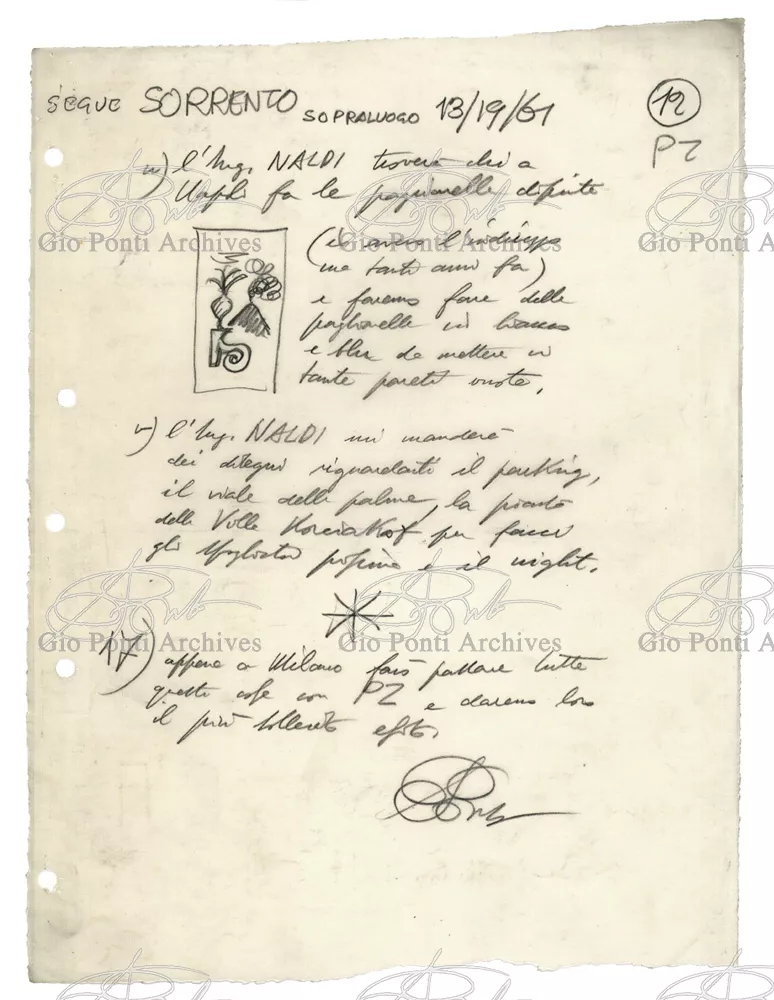 SEGUE SORRENTO SOPRALUOGO 13/19/61
12
PZ
l'Ing. NALDI troverà chi a
fa le dipinte
(io avevo l'indirizzo
ma tanti anni fa)
e faremo fare delle
in bianco
e blu da mettere in
tante pareti vuote.
v) l'Ing. NALDI mi manderà
dei disegni riguardanti il parking,
il viale delle palme, la pianta
della Villa per farci
gli e il night.
17) appena a Milano farò passare tutte
queste cose con PZ e daremo loro
il più sollecito esito.
Gio Ponti Archives
Gio Ponti Archives
Gio Ponti Archives
Gio Ponti Archives
Gio Ponti Archives
Gio Ponti Archives